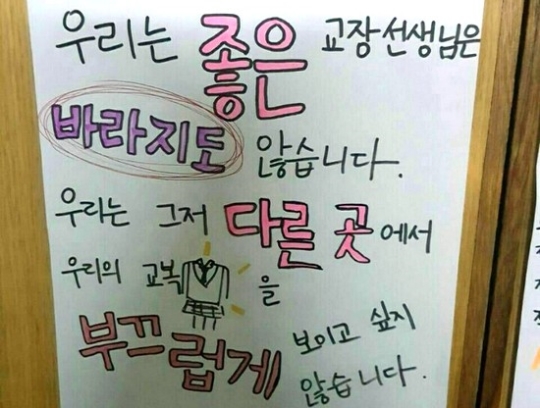 우리는 좋은 교장선생님은
바라지도 않습니다.
우리는 그저 다른 곳에서
우리의 교복을
부끄럽게 보이고 싶지
않습니다.